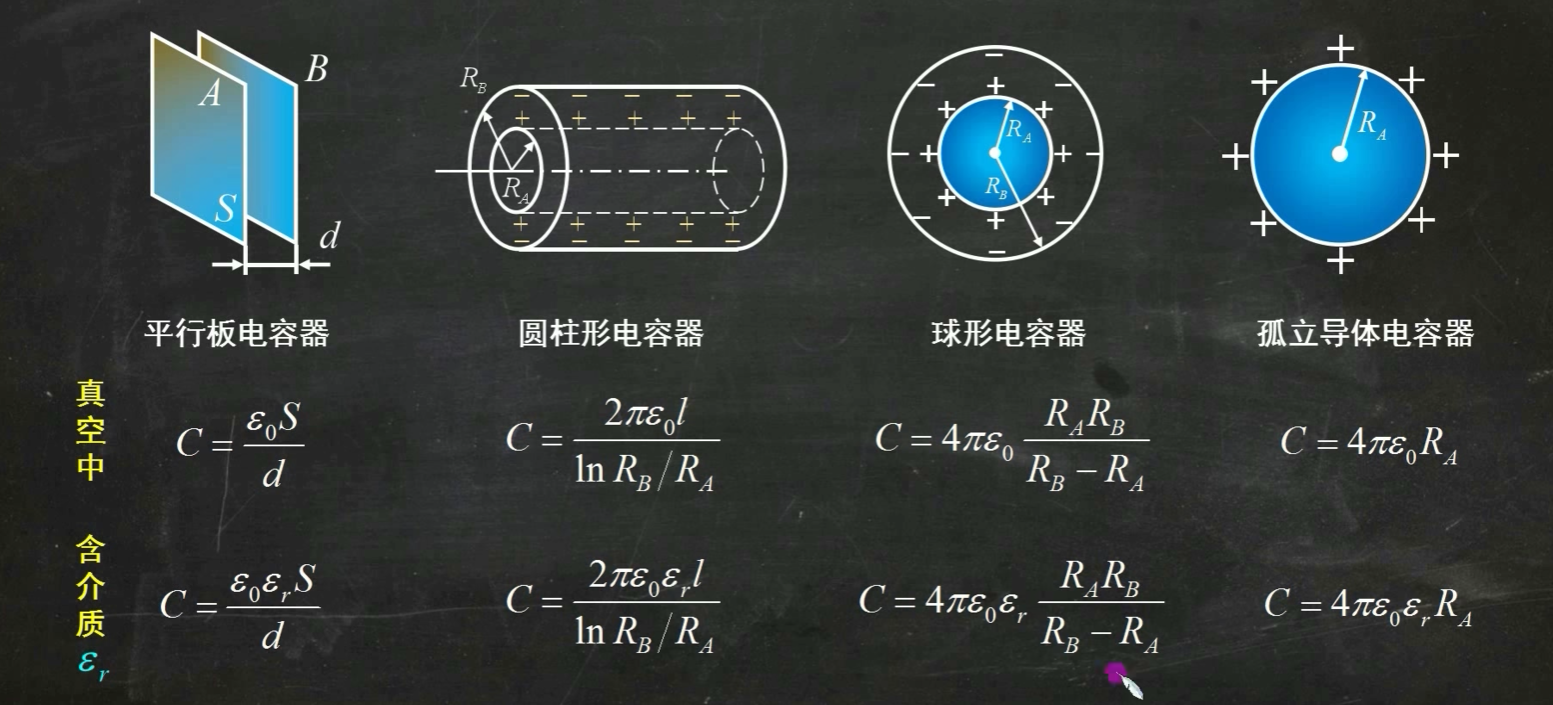 A
B
S
d
R_B
R_A
R_A
R_B
R_A
平行板电容器 圆柱形电容器 球形电容器 孤立导体电容器
真空中
C = ε₀S / d
C = 2πε₀l / ln R_B/R_A
C = 4πε₀ R_A R_B / R_B − R_A
C = 4πε₀R_A
含介质 ε_r
C = ε₀ε_r S / d
C = 2πε₀ε_r l / ln R_B/R_A
C = 4πε₀ε_r R_A R_B / R_B − R_A
C = 4πε₀ε_r R_A